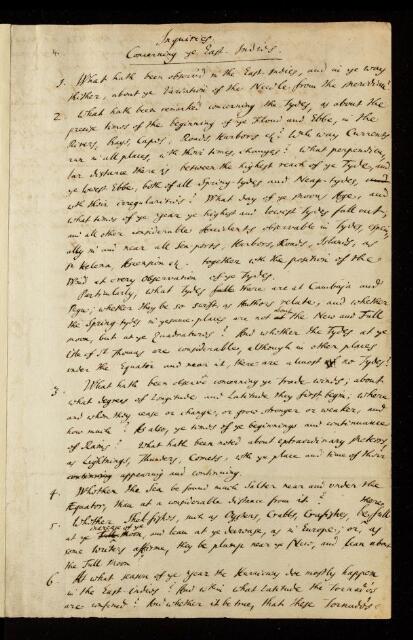 Inquiries
Concerning ye East-Indies.
1. What hath been observ'd in the East-Indies, and in ye way
thither, about ye Variation of the Needle from the Meridian
2. What hath been remarked concerning the Tydes, as about the
precise times of the beginning of ye Floud and Ebbe, in the
Rivers, Bays, Capes, Roads, Harbors &c? Wch way Currents
run in all places, wth their times, changes? What perpendicu-
lar distance there is between the highest reach of ye Tyde, and
ye lowest Ebbe, both of all Spring-tydes and Neap-tydes,
wth their irregularities? What day of ye moons Age, and
what times of ye year ye highest and lowest Tydes fall out,
and all other considerable Accidents observable in Tydes, speci-
ally in and near all Sea ports, Harbors, Roads, Islands, as
St Helena, Ascension &c. together wth the position of the
Wind at every observation of ye Tydes.
Particularly, what Tydes there are at Cambaja and
Pegu; whether they be so swift, as Authors relate, and whether
the Spring-tydes in yt same places are not about the New and Full
moon, but at ye Quadratures? And whether the Tydes at ye
Isle of St Thomas are considerable, although in other places
under the Equator and near it, there are almost no Tydes?
3. What hath been observ'd concerning ye trade winds; about
what degrees of Longitude and Latitude they first begin; where
and when they cease or change, or grow stronger or weaker, and
how much? As also, ye times of ye beginnings and continuance
of Rains? What hath been noted about extraordinary Meteors,
as Lightnings, Thunders, Comets, wth ye place and time of their
appearing and continuing.
4. Whether the Sea be found much Salter near and under the
Equator, than at a considerable distance from it?
5. Whether Shel-fishes, such as Oysters, Crabbs, Crafishes, be full
there,
at ye increase of ye Moon, and lean at ye decrease, as in Europe; or, as
some Writers affirme, they be plump near ye New, and lean about
the Full Moon
6. At what season of ye year the Hurricans doe mostly happen
in the East-Indies? And within what Latitude the Tornados
are confined? And whether it be true, that these Tornados